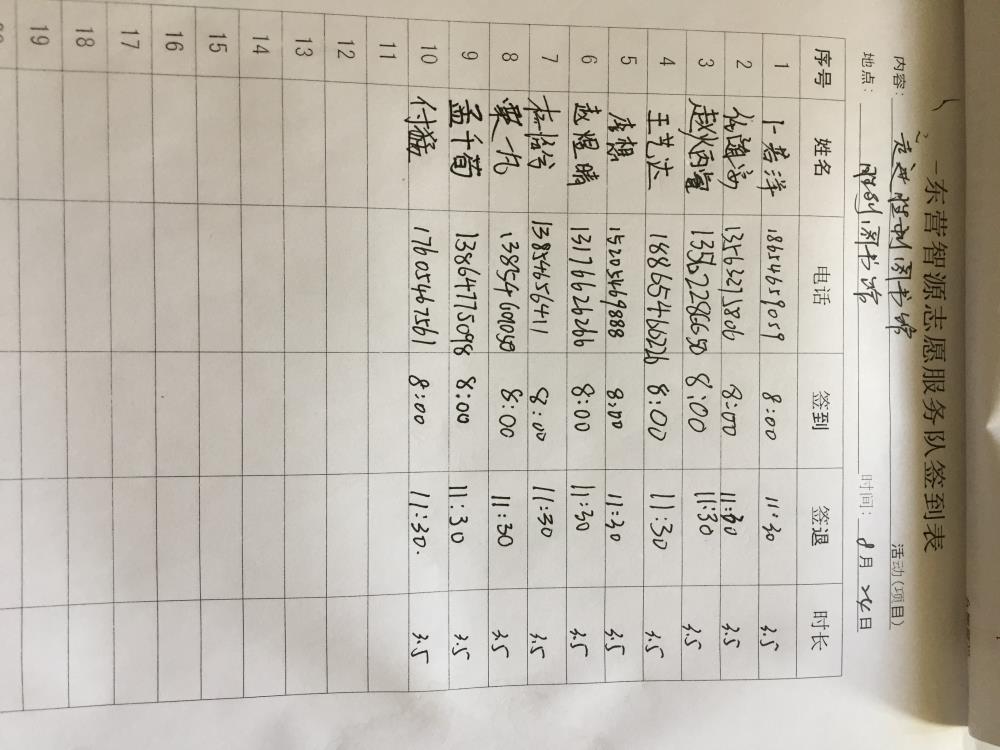 东营智源志愿服务队签到表
内容：走进胜利图书馆 活动（项目）
地点：胜利图书馆 时间：8月24日
序号 姓名 电话 签到 签退 时长
1 卜若洋 18654659059 8:00 11:30 3.5
2 13563275806 8:00 11:30 3.5
3 赵炳萱 13562286650 8:00 11:30 3.5
4 王艺达 18865466226 8:00 11:30 3.5
5 15205469888 8:00 11:30 3.5
6 赵煜晴 13176626266 8:00 11:30 3.5
7 13854656411 8:00 11:30 3.5
8 栗一凡 13854601050 8:00 11:30 3.5
9 孟千荀 13864775098 8:00 11:30 3.5
10 付猛 17605467561 8:00 11:30. 3.5
11
12
13
14
15
16
17
18
19